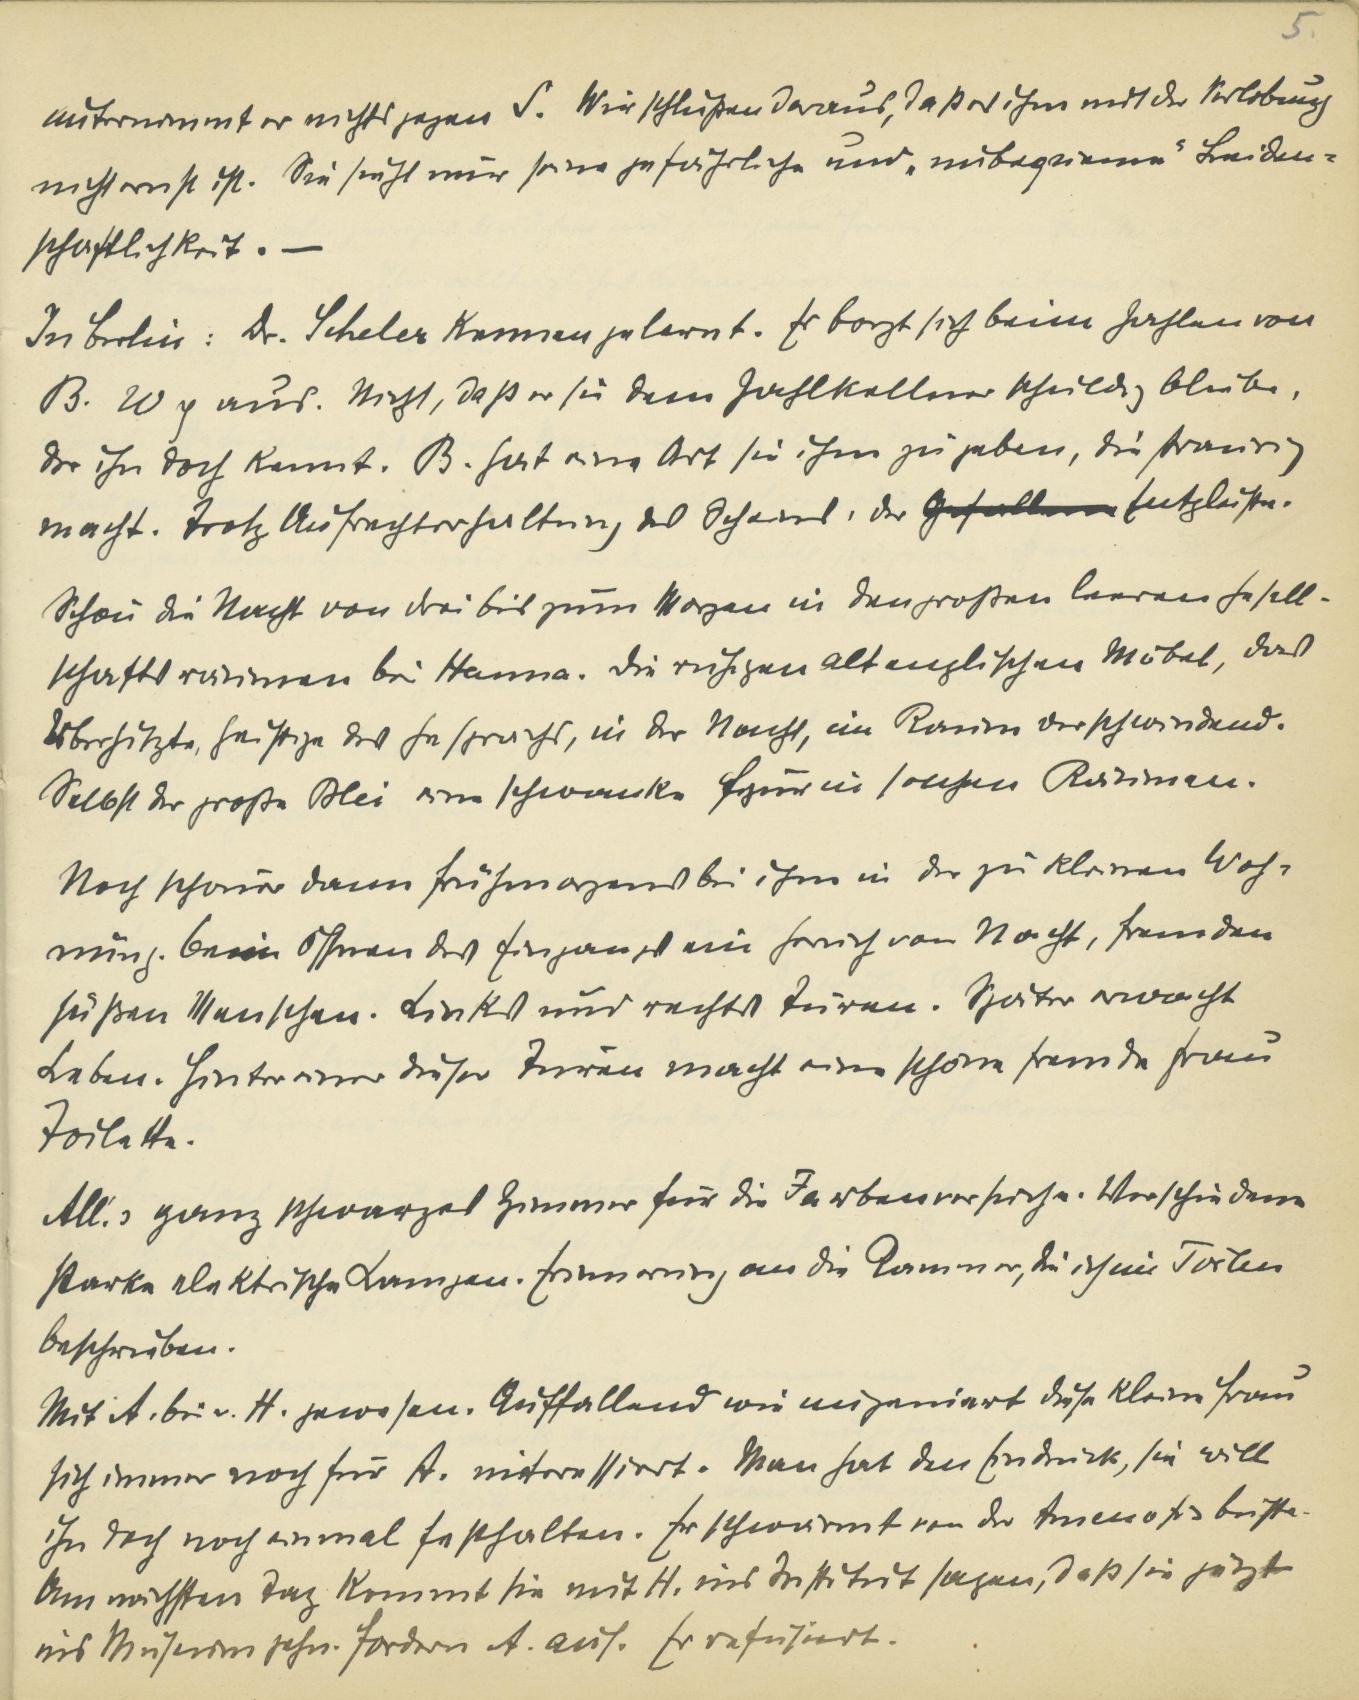 5.
unternimmt er nichts gegen S. Wir schließen daraus, daß es ihm mit der Verlobung
nicht ernst ist. Sie sieht nur seine gefährliche und „unbequeme“ Leiden-
schaftlichkeit. —
In Berlin: Dr. Scheler kennen gelernt. Er borgt sich beim Zahlen von
B. 20 M aus. Nicht, daß er sie dem Zahlkellner schuldig bliebe,
der ihn doch kennt. B. hat eine Art sie ihm zu geben, die traurig
macht. Trotz Aufrechterhaltung des Scheins, der Entgleiste.
Schön die Nacht von drei bis zum Morgen in den großen leeren Gesell-
schaftsräumen bei Hanna. Die ruhigen altenglischen Möbel, das
Überhitzte, Geistige des Gesprächs, in der Nacht, im Raum verschwindend.
Selbst der große Blei eine schwanke Figur in solchen Räumen.
Noch schöner dann frühmorgens bei ihm in der zu kleinen Woh-
nung. Beim Öffnen des Eingangs ein Geruch von Nacht, fremden
süßen Menschen. Links und rechts Türen. Später erwacht
Leben. Hinter einer dieser Türen macht eine schöne fremde Frau
Toilette.
All.s ganz schwarzes Zimmer für die Farbenversuche. Verschiedene
starke elektrische Lampen. Erinnerung an die Kammer, die ich im Törless
beschrieben.
Mit A. bei v. H. gewesen. Auffallend wie ungeniert diese kleine Frau
sich immer noch für A. interessiert. Man hat den Eindruck, sie will
ihn doch noch einmal festhalten. Er schwärmt von der Amenofis büste.
Am nächsten Tag kommt sie mit H. ins Institut sagen, daß sie jetzt
ins Museum gehn. Fordern A. auf. Er refüsiert.